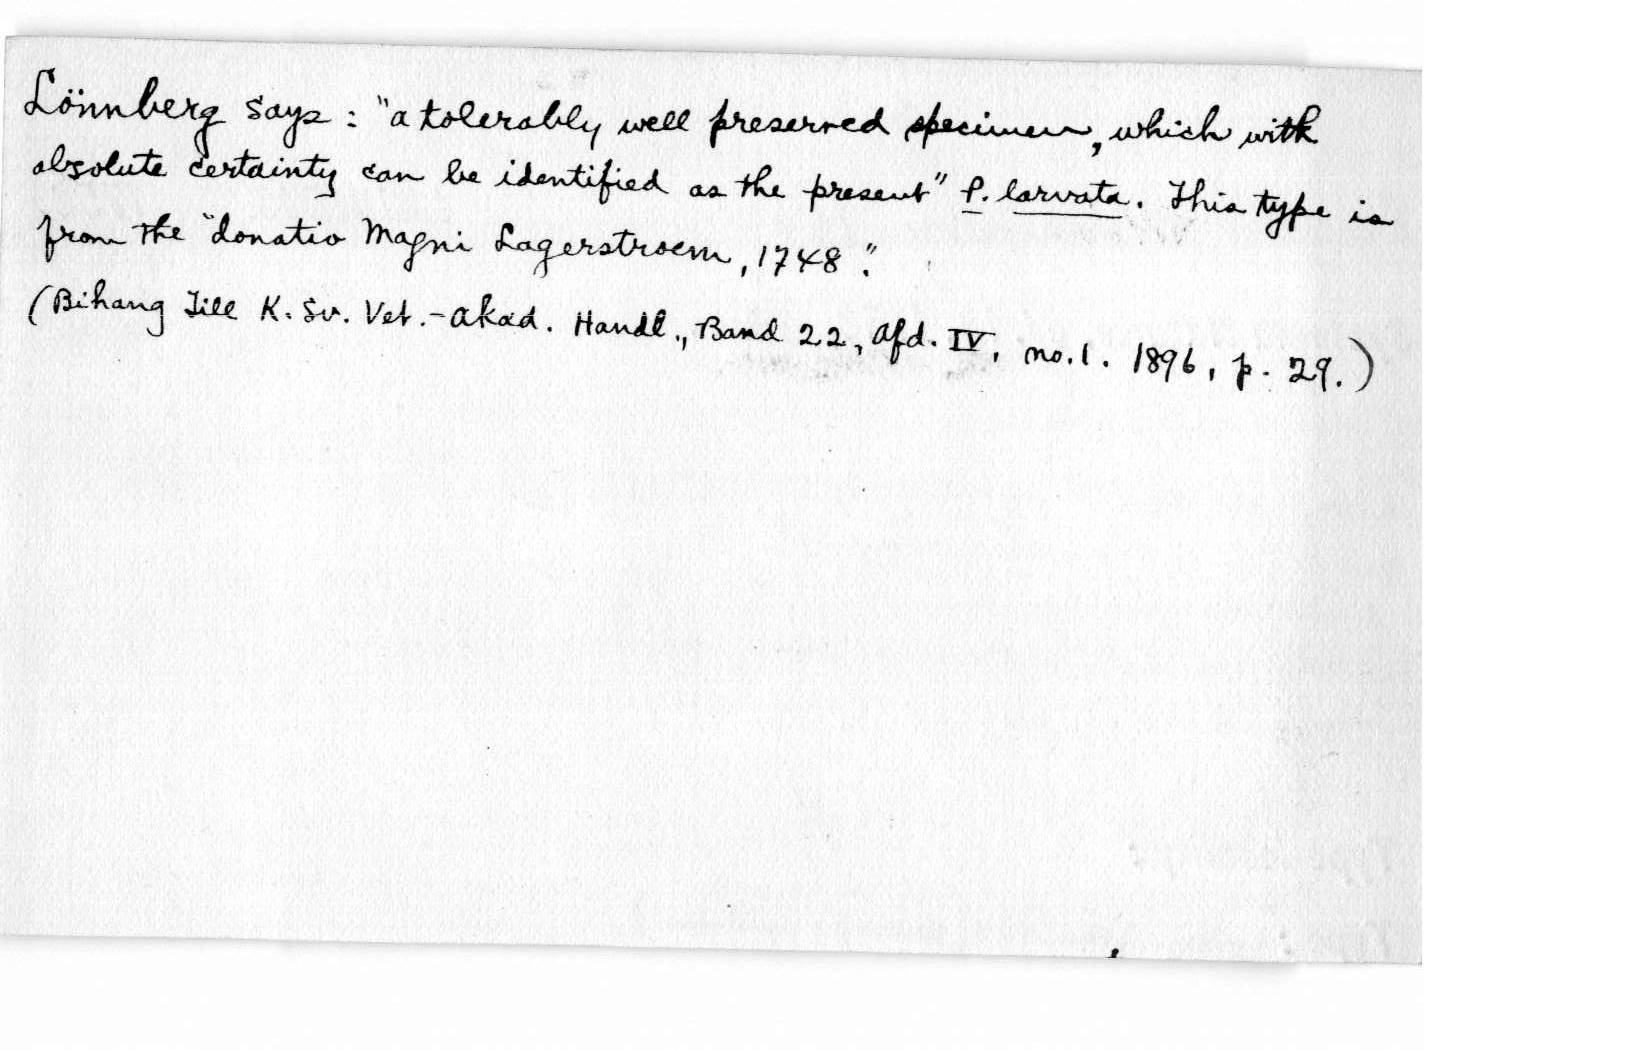 Lönnberg says: "a tolerably well preserved specimen, which with
absolute certainty can be identified as the present" P. larvata. This type is
from the "donatio Magni Lagerstroem, 1748".
(Bihang Till K. Sv. Vet.-Akad. Handl., Band 22, Afd. IV, no.1. 1896, p. 29.)